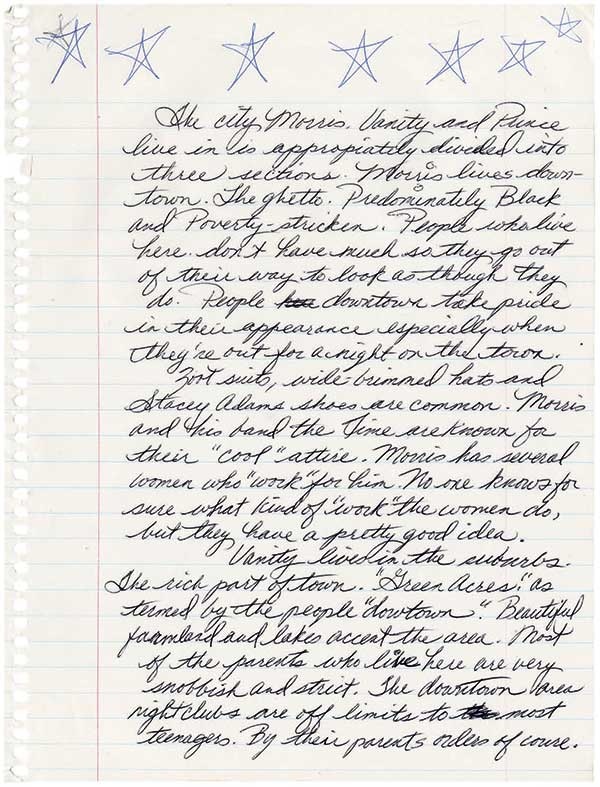 The city Morris. Vanity and Prince
live in is appropiately divided into
three sections. Morris lives down-
town. The ghetto. Predominately Black
and Poverty-stricken. People who live
here. don't have much so they go out
of their way to look as though they
do. People downtown take pride
in their appearance especially when
they're out for a night on the town.
Zoot suits, wide-brimmed hats and
Stacey Adams shoes are common. Morris
and his band the Time are known for
their "cool" attire. Morris has several
women who "work" for him. No one knows for
sure what kind of "work" the women do,
but they have a pretty good idea.
Vanity lives in the suburbs.
The rich part of town. "Green Acres." as
termed by the people "dowtown". Beautiful
farmland and lakes accent the area. Most
of the parents who live here are very
snobbish and strict. The downtown area
nightclubs are off limits to most
teenagers. By their parents orders of course.